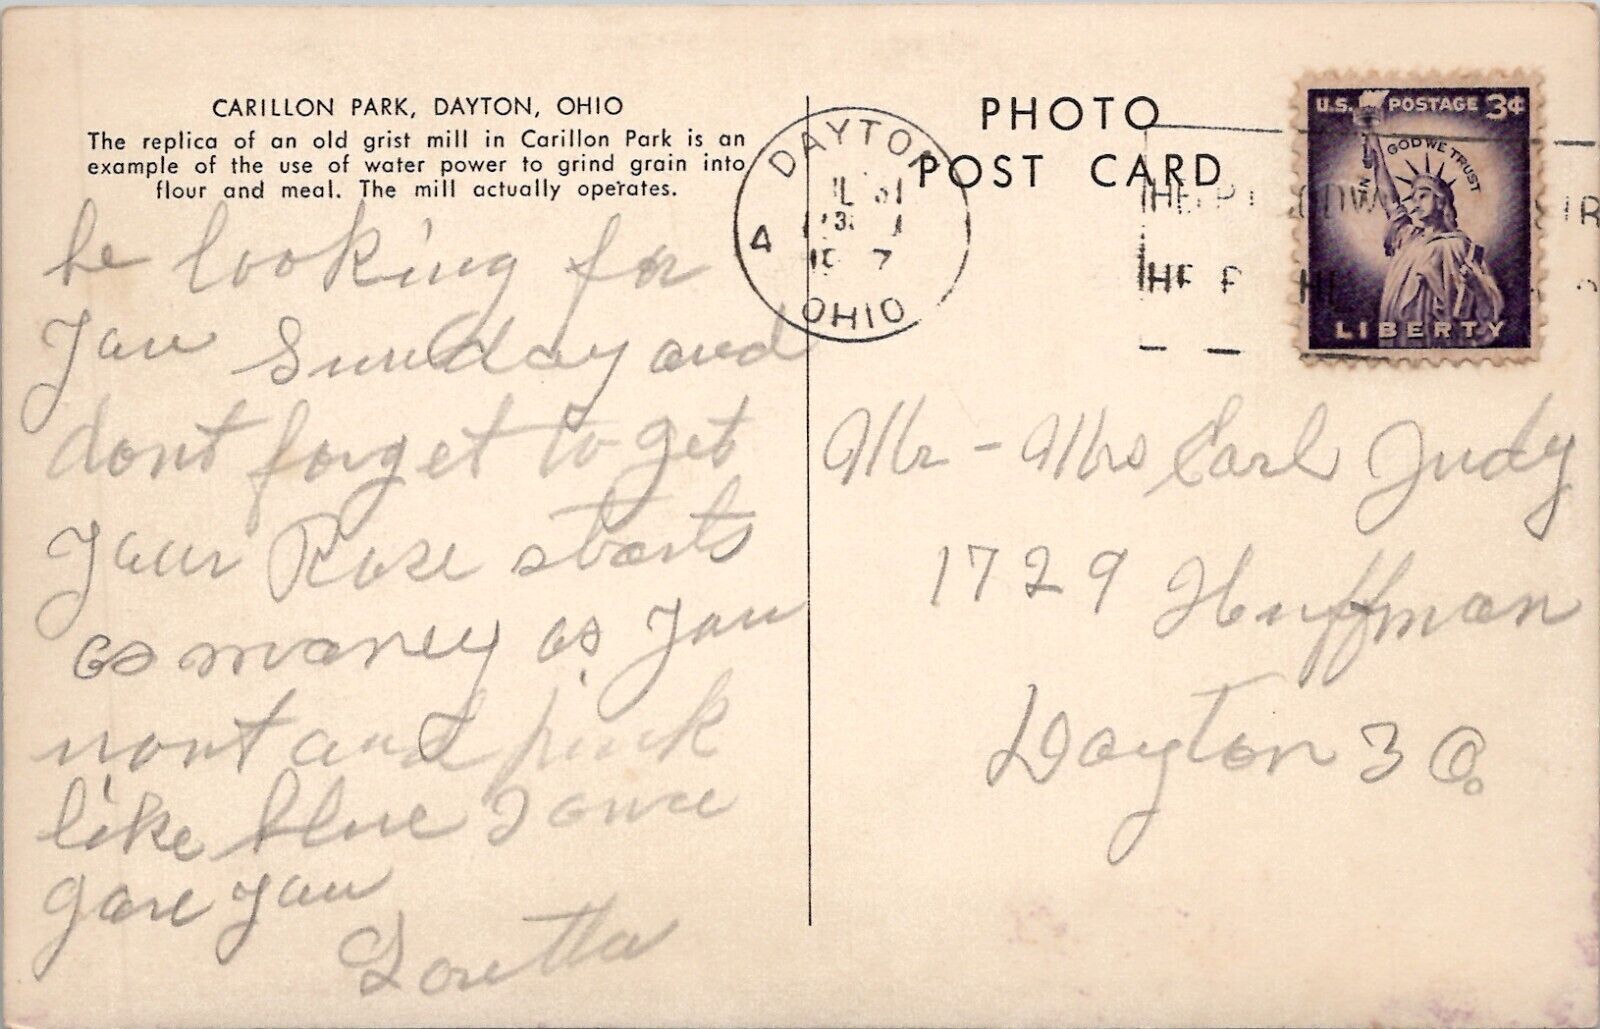 CARILLON PARK, DAYTON, OHIO
The replica of an old grist mill in Carillon Park is an
example of the use of water power to grind grain into
flour and meal. The mill actually operates.
be looking for
you Sunday and
dont forget to get
your Rose starts
as money as you
wont and pink
like blue I once
gave you
Loretta
PHOTO
POST CARD
DAYTON
4
OHIO
U.S. POSTAGE 3¢
IN GOD WE TRUST
LIBERTY
Mr - Mrs Earl Judy
1729 Huffman
Dayton 3 O.